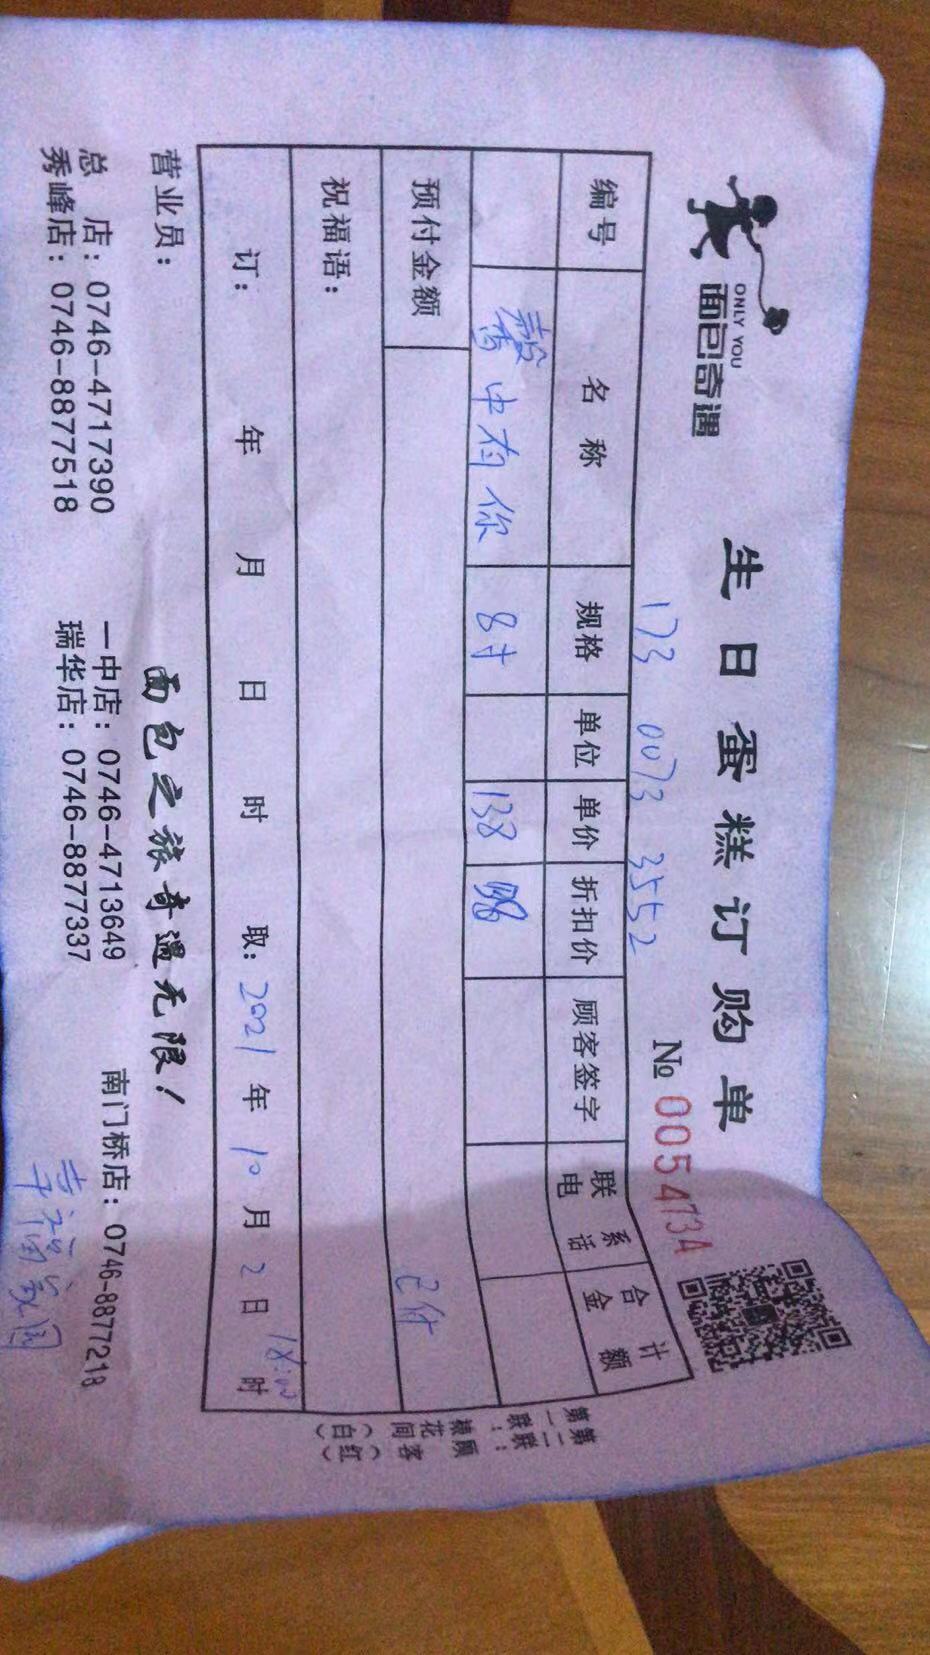 ONLY YOU
面包奇遇
生日蛋糕订购单
173 0073 3552
№ 005473A
编号 名称 规格 单位 单价 折扣价 顾客签字 联系电话 合计金额
馨中有你 8寸 138
预付金额 已付
祝福语：
订： 年 月 日 时 取：2021年10月2日18:00时
第一联：裱花间（白）
第二联：顾客（红）
营业员： 面包之旅奇遇无限！
总 店：0746-4717390 一中店：0746-4713649 南门桥店：0746-8877218
秀峰店：0746-8877518 瑞华店：0746-8877337 幸福家园